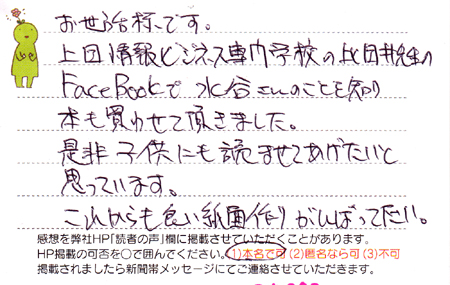 お世話様です。
上田情報ビジネス専門学校の比田井先生の
FaceBookで 水谷さんのことを知り
本も買わせて頂きました。
是非子供にも読ませてあげたいと
思っています。
これからも良い紙面作りがんばって下さい。
感想を弊社HP「読者の声」欄に掲載させていただくことがあります。
HP掲載の可否を○で囲んでください。(1)本名で可 (2)匿名なら可 (3)不可
掲載されましたら新聞帯メッセージにてご連絡させていただきます。